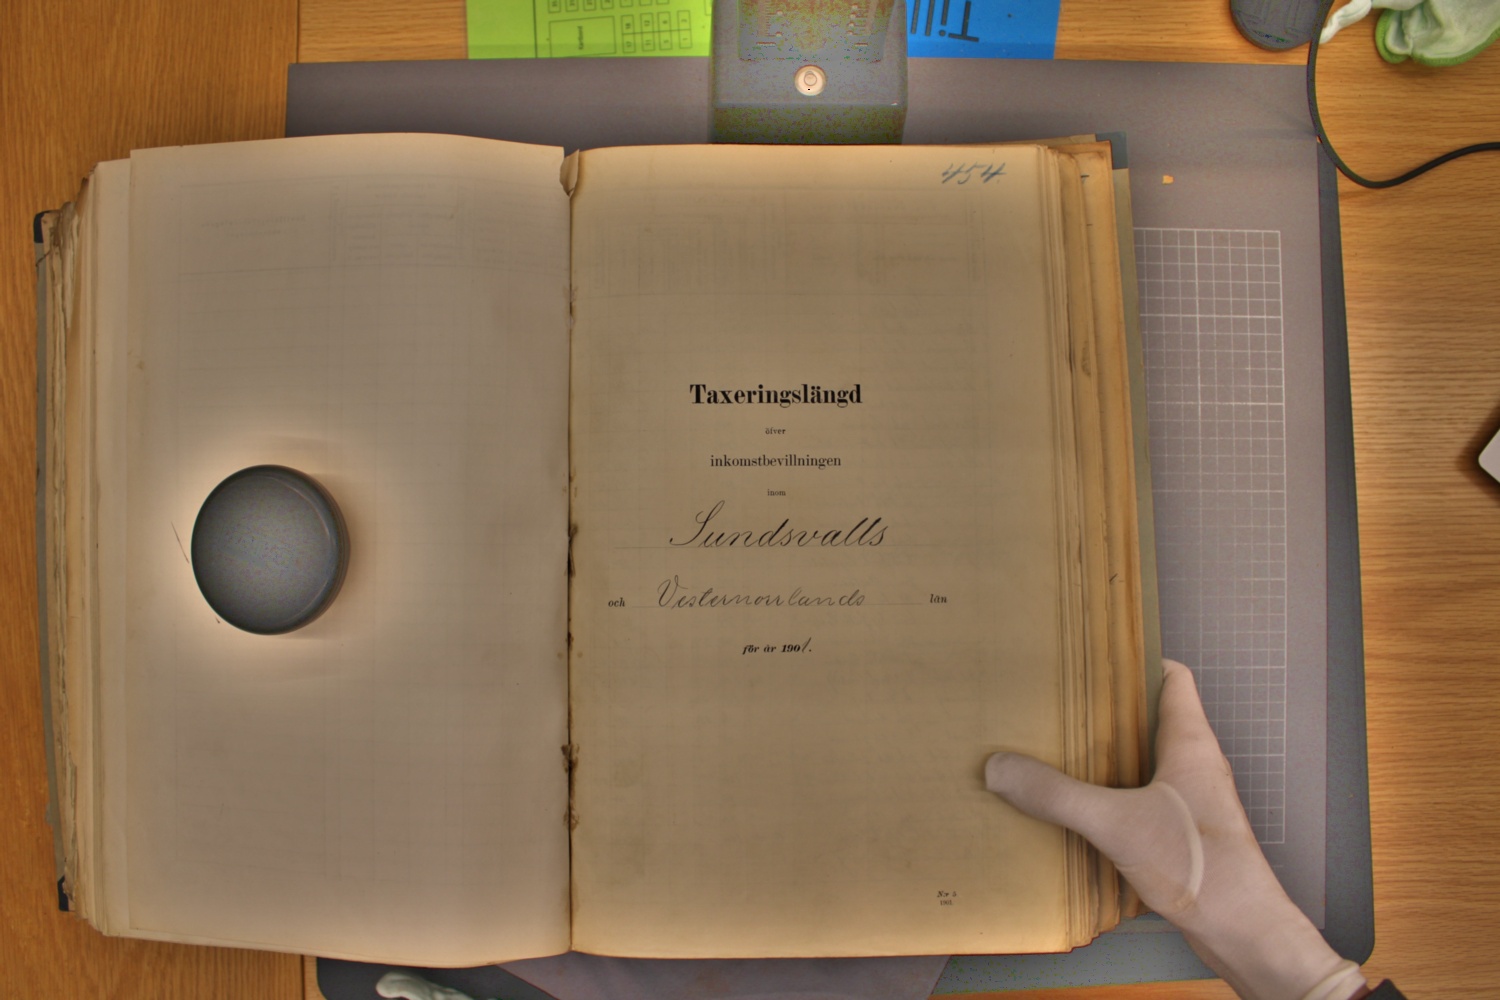 Till
454.
Taxeringslängd
öfver
inkomstbevillningen
inom
Sundsvalls
och Vesternorrlands län
för år 1901.
N:r 5